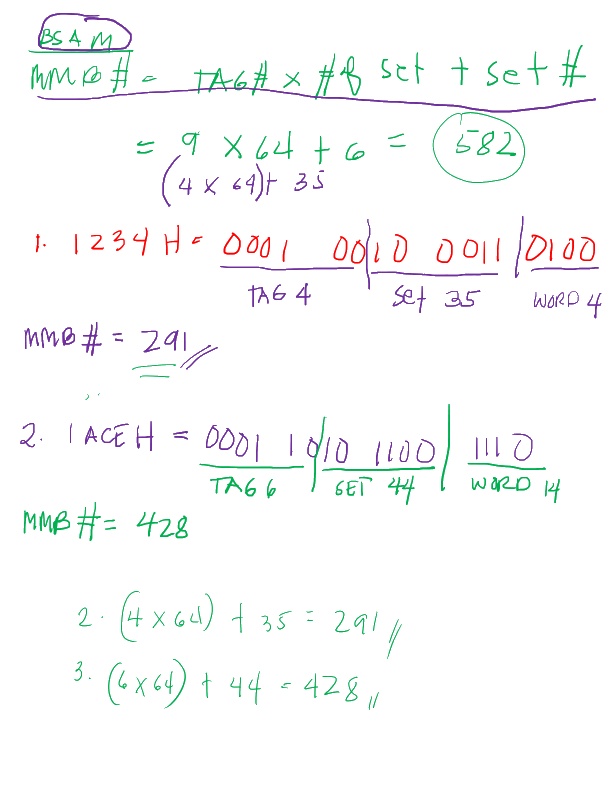 BSAM
MMB # = TAG # x # of set + set #
= 9 x 64 + 6 = 582
(4 x 64) + 35
1. 1234 H = 0001 00|10 0011 | 0100
TAG 4 set 35 WORD 4
MMB # = 291
2. 1ACEH = 0001 10|10 1100 | 1110
TAG 6 SET 44 WORD 14
MMB # = 428
2. (4 x 64) + 35 = 291 //
3. (6 x 64) + 44 = 428 //